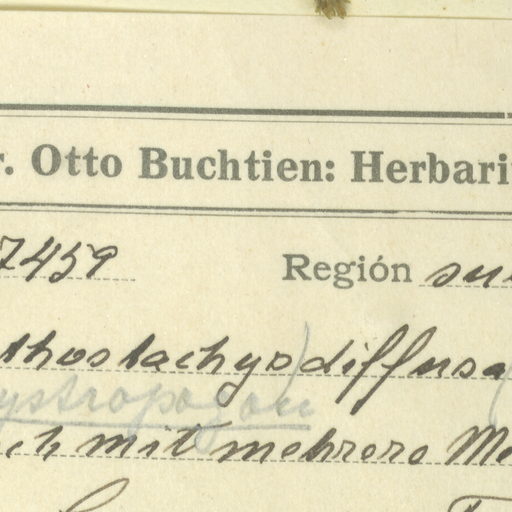 r. Otto Buchtien: Herbari
7459 Región su
thostachys) diffusa
ystropogon (
ch mit mehrere Me